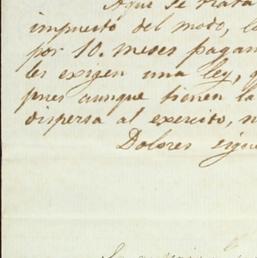 Aquí se trata
impuesto del modo, la
por 10. meses pagan
les exigen una ley, q
pues aunque tienen la
dispersa al exercito, n
Dolores sigue